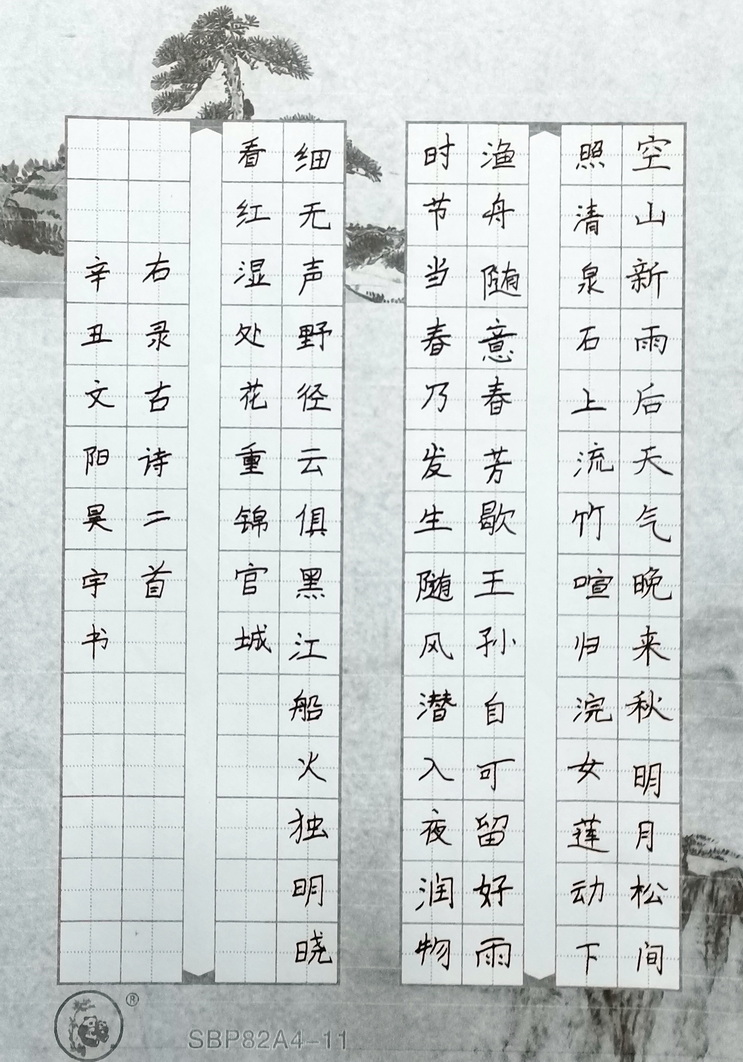 空山新雨后天气晚来秋明月松间
照清泉石上流竹喧归浣女莲动下
渔舟随意春芳歇王孙自可留好雨
时节当春乃发生随风潜入夜润物
细无声野径云俱黑江船火独明晓
看红湿处花重锦官城
右录古诗二首
辛丑文阳昊宇书
®
SBP82A4-11